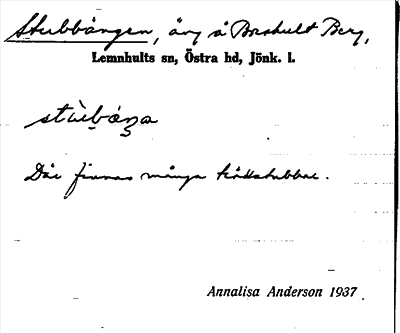 Stubbängen, äng å Boshult Berg,
Lemnhults sn, Östra hd, Jönk. l.
Där finnas många trädstubbar.
Annalisa Anderson 1937